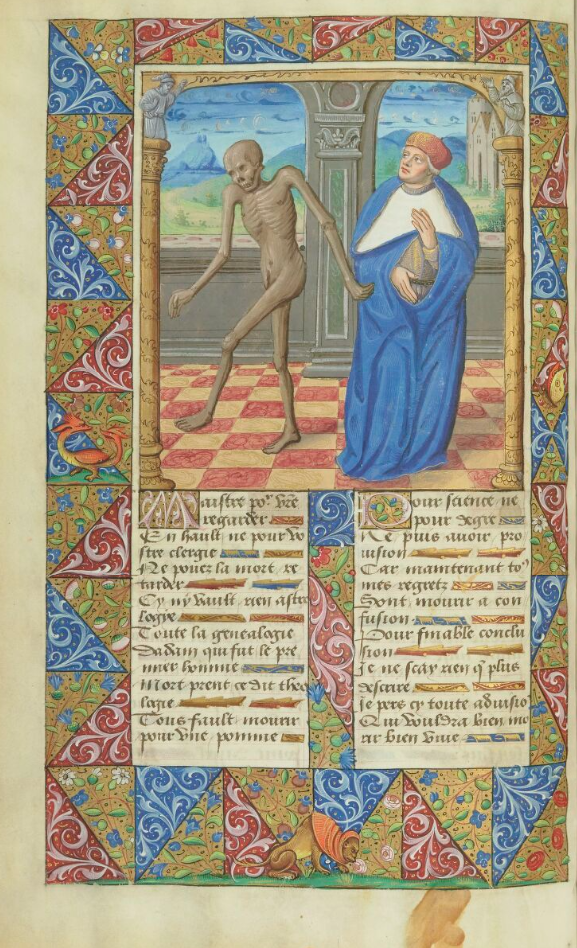 Maistre pour vre
regarder
En hault ne pour vo
stre clergie
Ne pouez la mort re
tarder
Cy ny vault rien astro
logie
Toute la genealogie
Dadam qui fut le pre
mier homme
Mort prent ce dit theo
logie
Tous fault mourir
pour vne pomme
Pour science ne
pour degre
Ne puis auoir pro
uision
Car maintenant to9
mes regretz
Sont mourir a con
fusion
Pour finable conclu
sion
Je ne scay rien q plus
descrire
Je pers cy toute aduisio
Qui vouldra bien mo
rir bien viue